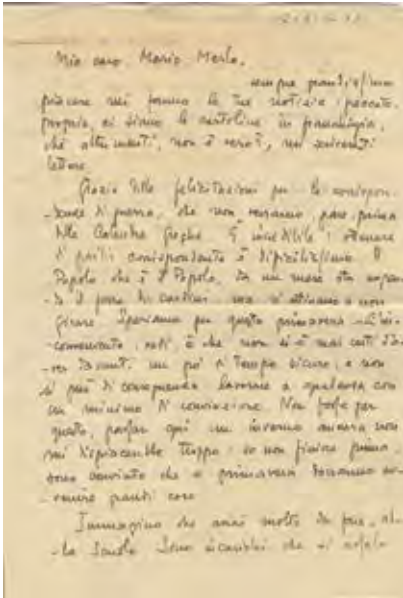 Mio caro Mario Merlo,
sempre grandissimo
piacere mi fanno le tue notizie: peccato
proprio, ci siano le cartoline in franchigia,
ché altrimenti, non è vero?, mi scriveresti
lettere.
Grazie delle felicitazioni per le corrispon-
-denze di guerra, che non verranno, pare, prima
delle Calende Greche. È incredibile: ottenere
di partir corrispondente è difficilissimo. Il
Popolo che è il Popolo, da un mese sta
di fare
girare. Speriamo per questa primavera. L'in-
conveniente, vedi, è che non si è mai certi d'a-
ver davanti un po' di tempo sicuro, e non
si può di conseguenza lavorare a qualcosa con
un minimo di convinzione. Ma forse per
questo, passar qui un inverno ancora non
mi dispiacerebbe troppo: se non finisce prima,
sono convinto che a primavera dovranno av-
-venire grandi cose.
Immagino che avrai molto da fare, al-
-la Scuola. Sono